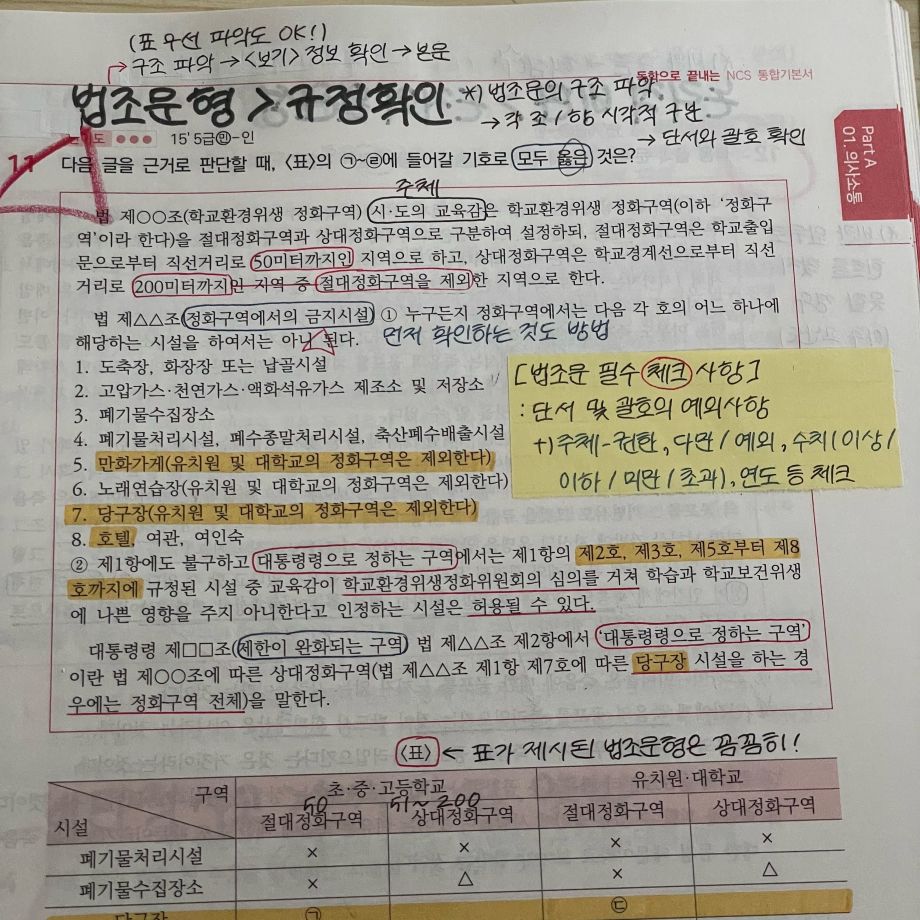 (표 우선 파악도 OK!)
→ 구조 파악 → <보기> 정보 확인 → 본문
통합으로 끝내는 NCS 통합기본서
법조문형 > 규정확인
*) 법조문의 구조 파악
→ 각 조 / 항 시각적 구분
→ 단서와 괄호 확인
15' 5급㉑-인
Part A
01. 의사소통
11 다음 글을 근거로 판단할 때, 〈표〉의 ㉠~㉣에 들어갈 기호로 모두 옳은 것은?
주체
법 제○○조(학교환경위생 정화구역) 시·도의 교육감은 학교환경위생 정화구역(이하 ‘정화구
역’이라 한다)을 절대정화구역과 상대정화구역으로 구분하여 설정하되, 절대정화구역은 학교출입
문으로부터 직선거리로 50미터까지인 지역으로 하고, 상대정화구역은 학교경계선으로부터 직선
거리로 200미터까지인 지역 중 절대정화구역을 제외한 지역으로 한다.
법 제△△조(정화구역에서의 금지시설) ① 누구든지 정화구역에서는 다음 각 호의 어느 하나에
해당하는 시설을 하여서는 아니 된다.
먼저 확인하는 것도 방법
1. 도축장, 화장장 또는 납골시설
2. 고압가스·천연가스·액화석유가스 제조소 및 저장소
3. 폐기물수집장소
4. 폐기물처리시설, 폐수종말처리시설, 축산폐수배출시설
5. 만화가게(유치원 및 대학교의 정화구역은 제외한다)
6. 노래연습장(유치원 및 대학교의 정화구역은 제외한다)
7. 당구장(유치원 및 대학교의 정화구역은 제외한다)
8. 호텔, 여관, 여인숙
[법조문 필수 체크 사항]
: 단서 및 괄호의 예외사항
+) 주체-권한, 다만 / 예외, 수치(이상 /
이하 / 미만 / 초과), 연도 등 체크
② 제1항에도 불구하고 대통령령으로 정하는 구역에서는 제1항의 제2호, 제3호, 제5호부터 제8
호까지에 규정된 시설 중 교육감이 학교환경위생정화위원회의 심의를 거쳐 학습과 학교보건위생
에 나쁜 영향을 주지 아니한다고 인정하는 시설은 허용될 수 있다.
대통령령 제□□조(제한이 완화되는 구역) 법 제△△조 제2항에서 ‘대통령령으로 정하는 구역’
이란 법 제○○조에 따른 상대정화구역(법 제△△조 제1항 제7호에 따른 당구장 시설을 하는 경
우에는 정화구역 전체)을 말한다.
〈표〉 ← 표가 제시된 법조문형은 꼼꼼히!
구역 초·중·고등학교 유치원·대학교
50 51~200
시설 절대정화구역 상대정화구역 절대정화구역 상대정화구역
폐기물처리시설 × × × ×
폐기물수집장소 × △ × △
당구장 ㉠ ㉢